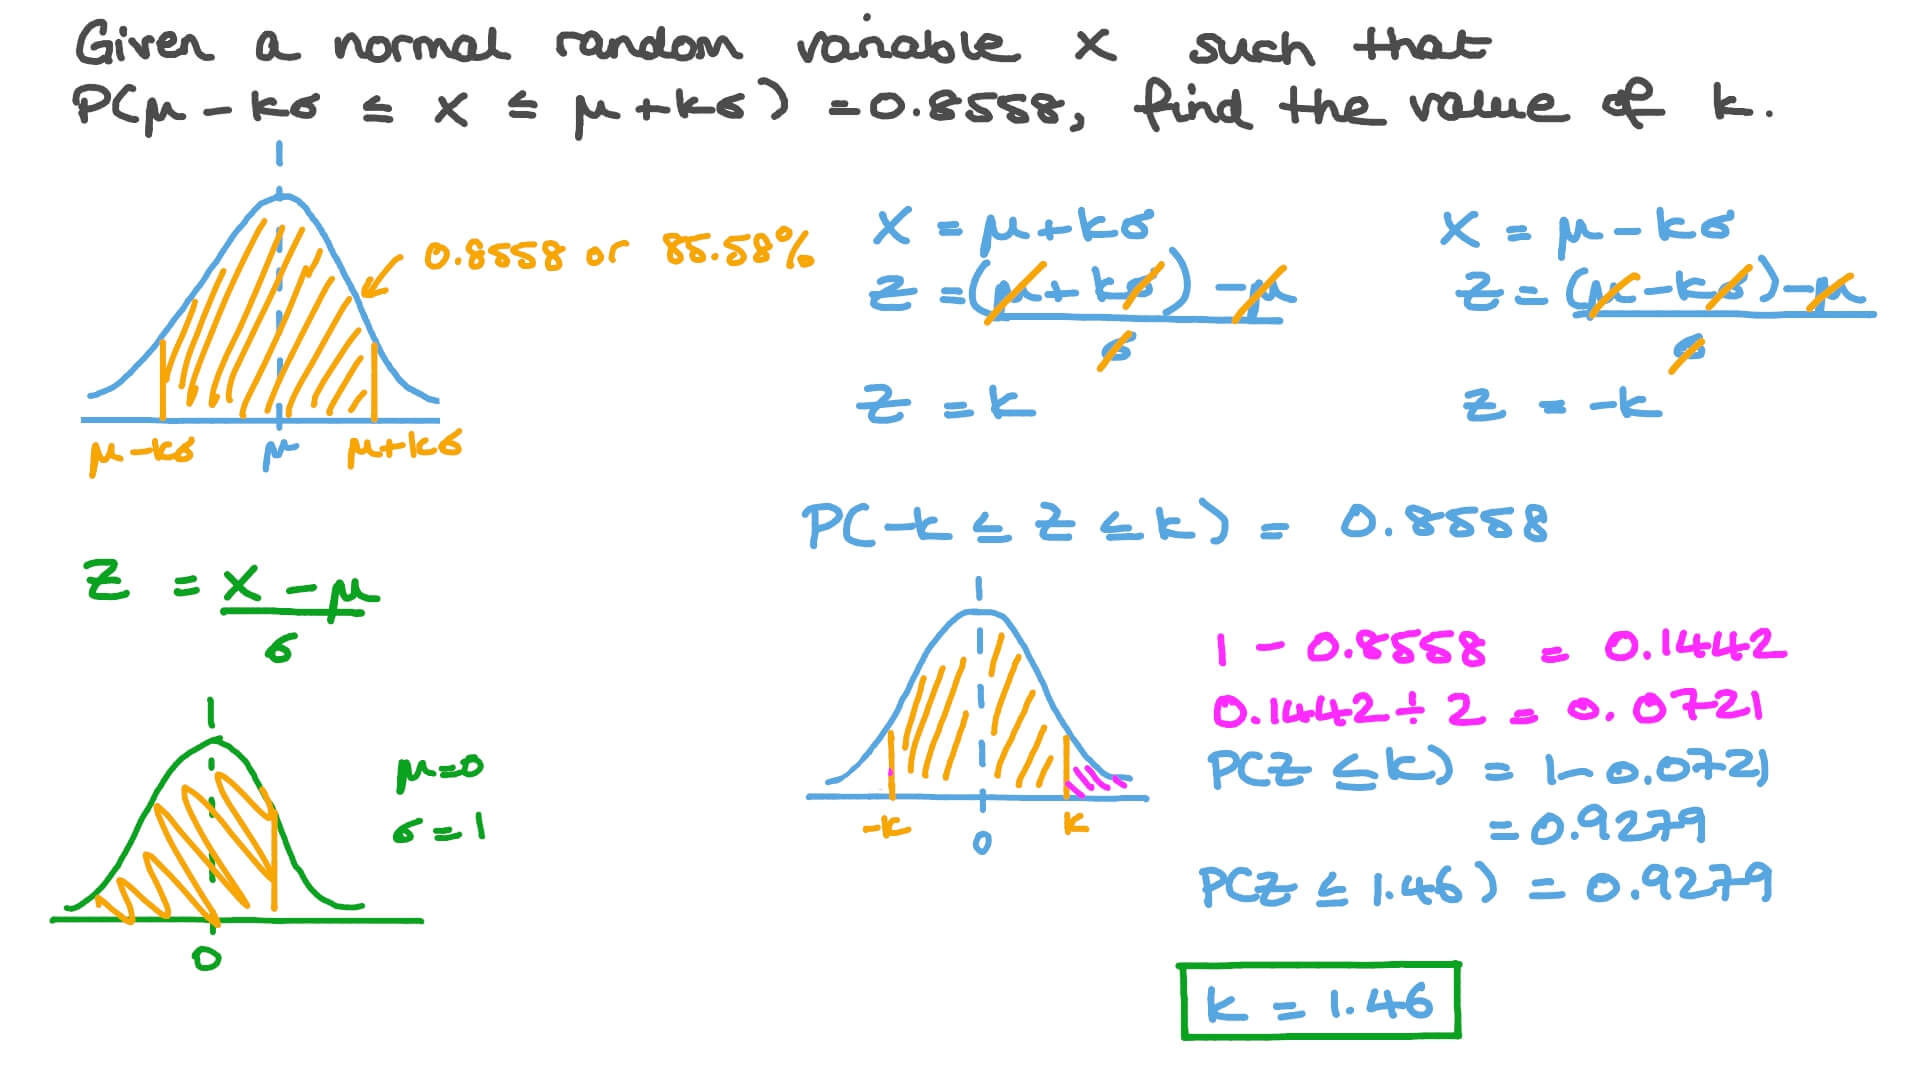 Given a normal random variable X such that
P(μ - kσ ≤ X ≤ μ + kσ) = 0.8558, find the value of k.
0.8558 or 85.58%
μ-kσ μ μ+kσ
Z = X - μ / σ
μ=0
σ=1
0
X = μ+kσ
Z = (μ+kσ) - μ / σ
Z = k
X = μ-kσ
Z = (μ-kσ) - μ / σ
Z = -k
P(-k ≤ Z ≤ k) = 0.8558
-k 0 k
1 - 0.8558 = 0.1442
0.1442 ÷ 2 = 0.0721
P(Z ≤ k) = 1 - 0.0721
= 0.9279
P(Z ≤ 1.46) = 0.9279
k = 1.46